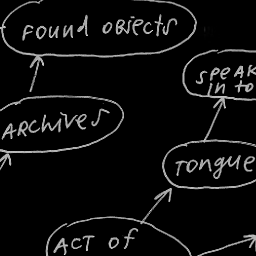 FOUND OBJECTS
SPEAK
IN TO
ARCHIVES
TONGUE
ACT OF